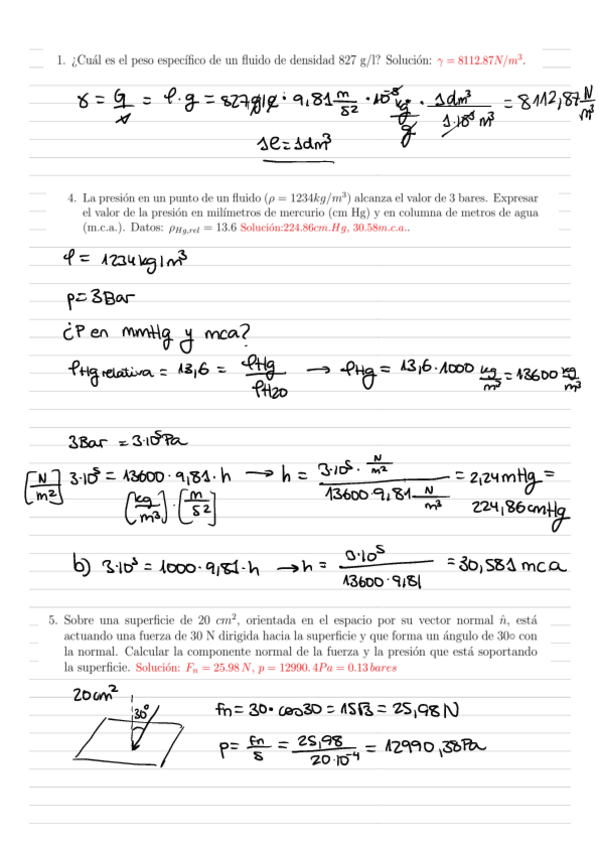 1. ¿Cuál es el peso específico de un fluido de densidad 827 g/l? Solución: γ = 8112.87N/m³.
γ = G/V = ρ·g = 827 g/l · 9,81 m/s² · 10⁻³ kg/g · 1dm³/1·10⁻³ m³ = 8112,87 N/m³
1l = 1dm³
4. La presión en un punto de un fluido (ρ = 1234kg/m³) alcanza el valor de 3 bares. Expresar
el valor de la presión en milímetros de mercurio (cm Hg) y en columna de metros de agua
(m.c.a.). Datos: ρHg,rel = 13.6 Solución:224.86cm.Hg, 30.58m.c.a..
ρ = 1234 kg/m³
p = 3Bar
¿P en mmHg y mca?
ρHg relativa = 13,6 = ρHg/ρH2O → ρHg = 13,6·1000 kg/m³ = 13600 kg/m³
3Bar = 3·10⁵Pa
[N/m²] 3·10⁵ = 13600·9,81·h → h = 3·10⁵·N/m² / 13600·9,81 N/m³ = 2,24mHg =
[kg/m³]·[m/s²] 224,86cmHg
b) 3·10⁵ = 1000·9,81·h → h = 0·10⁵ / 13600·9,81 = 30,581 mca
5. Sobre una superficie de 20 cm², orientada en el espacio por su vector normal n̂, está
actuando una fuerza de 30 N dirigida hacia la superficie y que forma un ángulo de 30◦ con
la normal. Calcular la componente normal de la fuerza y la presión que está soportando
la superficie. Solución: Fn = 25.98 N, p = 12990.4Pa = 0.13 bares
20cm²
30°
fn = 30·cos30 = 15√3 = 25,98 N
p = fn/S = 25,98/20·10⁻⁴ = 12990,38Pa